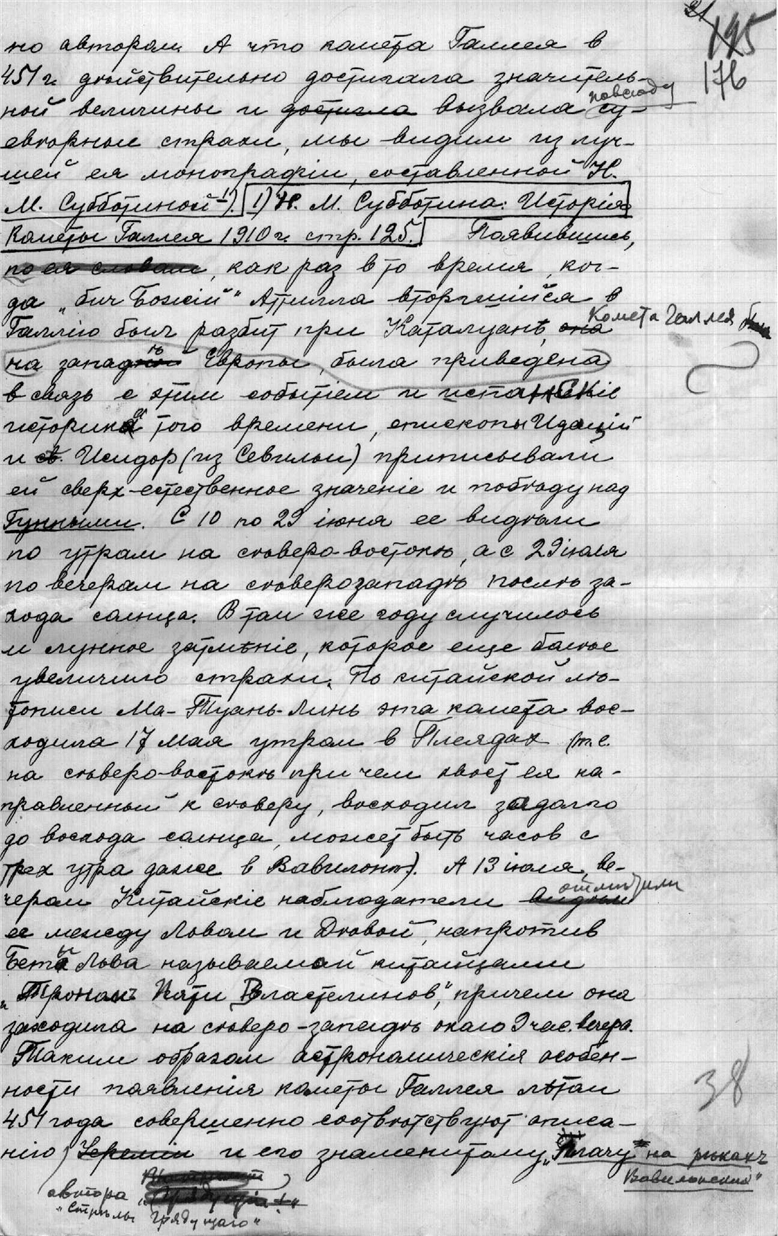 21
195
176
но автором. А что комета Галлея в
451 г. действительно достигала значитель-
ной величины и достигла вызвала повсюду су-
еверные страхи, мы видим из луч-
шей ея монографіи, составленной Н.
М. Субботиной 1). 1) Н. М. Субботина: Исторія
Кометы Галлея 1910 г. стр. 125. Появившись,
по ея словам, как раз в то время, ког-
да „бич Божій“ Аттилла вторгшійся в
Галлію был разбит при Каталуанѣ, она Комета Галлея
на западѣ Европы была приведена
в связь с этим событіем и испанскіе
историки того времени, епископы Идацій
и Исидор (из Севильи) приписывали
ей сверх-естественное значеніе и побѣду над
Гуннами. С 10 по 29 іюня ее видѣли
по утрам на сѣверо-востокѣ, а с 29 іюля
по вечерам на сѣверозападѣ послѣ за-
хода солнца. В том же году случилось
и лунное затмѣніе, которое еще более
увеличило страхи. По китайской лѣ-
тописи Ма-Туань-Линь эта комета вос-
ходила 17 Мая утром в Плеядах (т.е.
на сѣверо-востокѣ при чем хвост ея на-
правленный к сѣверу, восходил задолго
до восхода солнца, может быть часов с
трех утра даже в Вавилонѣ). А 13 іюля, ве-
чером Китайскіе наблюдатели видѣли отмѣтили
ее между Львом и Дѣвой, напротив
Беты Льва называемой китайцами
„Троном Пяти Властелинов“, причем она
заходила на сѣверо-западѣ около 9 час. вечера.
Таким образом астрономическія особен-
ности появленія кометы Галлея лѣтом
451 года совершенно соотвѣтствуют описа-
нію Іереміи и его знаменитому „Плачу на рѣках
Вавилонских“
автора
„Стрѣлы Грядущаго“
38